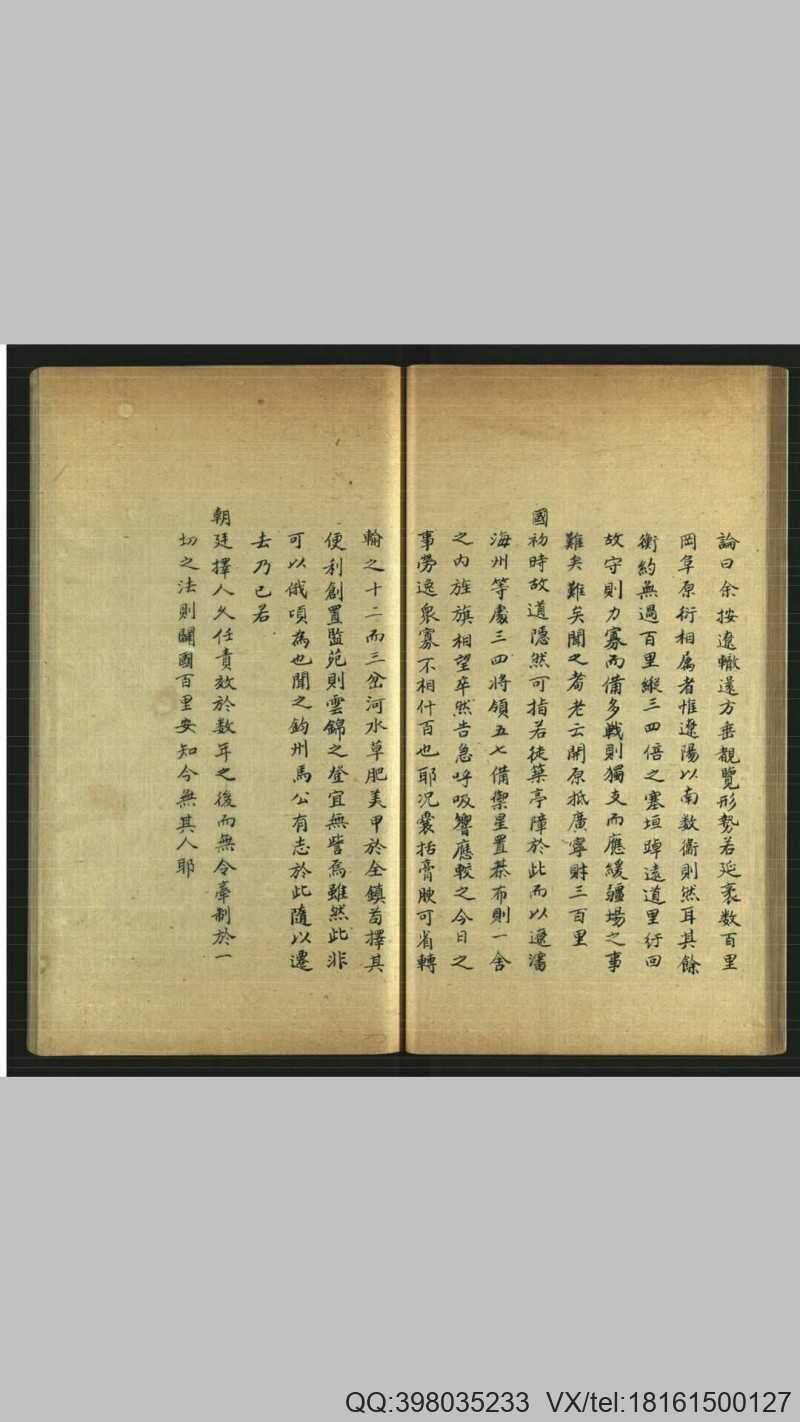 論曰余按遼轍邊方垂覩覽形勢若延袤数百里
岡阜原衍相属者惟遼陽以南数衞則然耳其餘
衡約無過百里縱三四倍之塞垣踔遠道里紆回
故守則力寡而備多戦則獨支而應緩疆場之事
難矣難矣聞之耆老云開原抵廣寧財三百里
國初時故道隱然可指若徒築亭障於此而以邊瀋
海州等處三四將領五七備禦星置棊布則一舎
之内旌旗相望卒然告急呼吸響應較之今日之
事勞逸衆寡不相什百也耶况囊括膏腴可省轉
輸之十二而三岔河水草肥美甲於全鎮苟擇其
便利創置監苑則雲錦之登宜無訾焉雖然此非
可以俄頃為也聞之鈞州馬公有志於此隨以遷
去乃已若
朝廷擇人久任責效於数年之後而無令牽制於一
切之法則闢國百里安知今無其人耶
QQ:398035233 VX/tel:18161500127